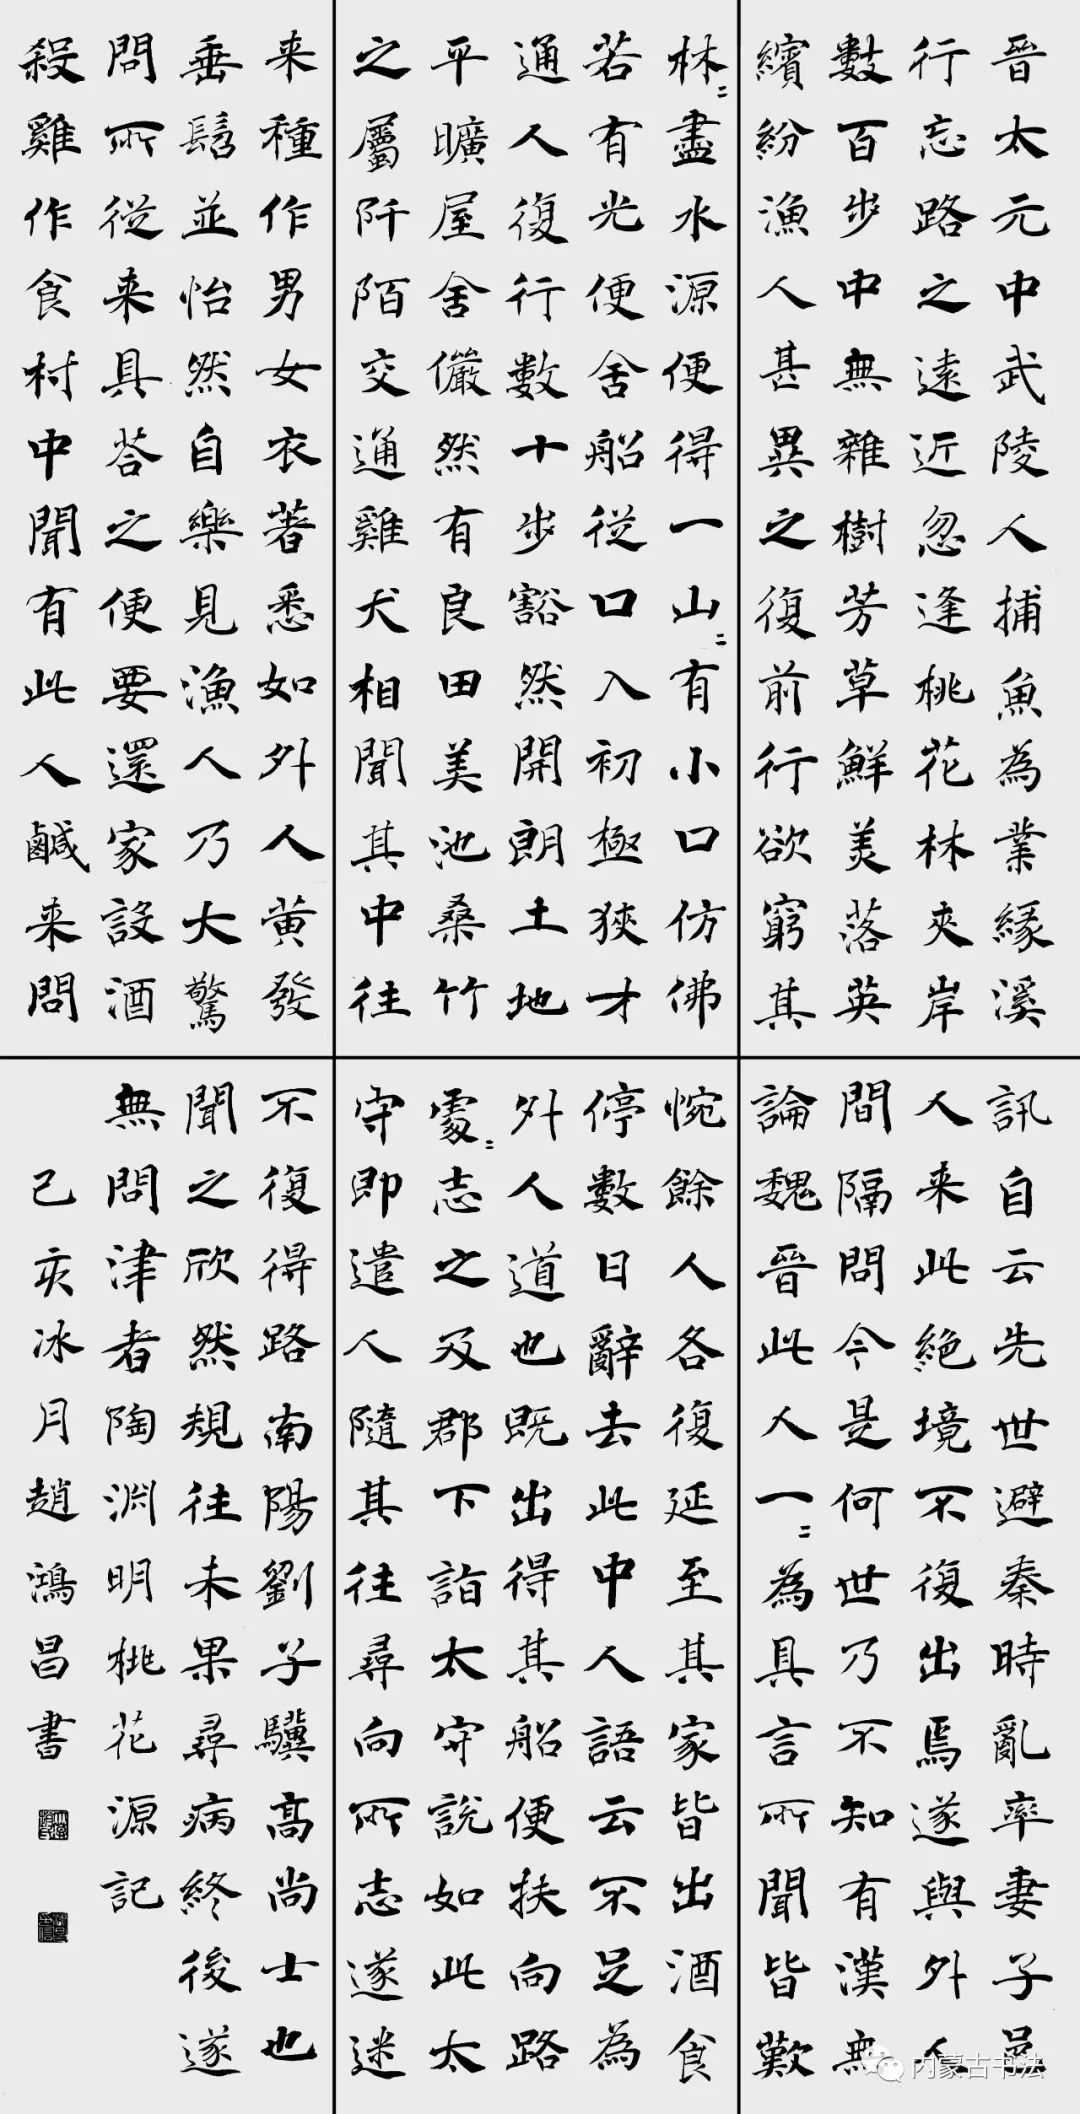 晉太元中武陵人捕魚為業緣溪
行忘路之遠近忽逢桃花林夾岸
數百步中無雜樹芳草鮮美落英
繽紛漁人甚異之復前行欲窮其
林〻盡水源便得一山〻有小口仿佛
若有光便舍船從口入初極狹才
通人復行數十步豁然開朗土地
平曠屋舍儼然有良田美池桑竹
之屬阡陌交通雞犬相聞其中往
来種作男女衣著悉如外人黄發
垂髫並怡然自樂見漁人乃大驚
問所從来具荅之便要還家設酒
殺雞作食村中聞有此人鹹来問
訊自云先世避秦時亂率妻子邑
人来此絕境不復出焉遂與外人
間隔問今是何世乃不知有漢無
論魏晉此人一〻為具言所聞皆歎
惋餘人各復延至其家皆出酒食
停數日辭去此中人語云不足為
外人道也既出得其船便扶向路
處〻志之及郡下詣太守說如此太
守即遣人隨其往尋向所志遂迷
不復得路南陽劉子驥高尚士也
聞之欣然規往未果尋病終後遂
無問津者陶淵明桃花源記
己亥冰月趙鴻昌書
内蒙古书法